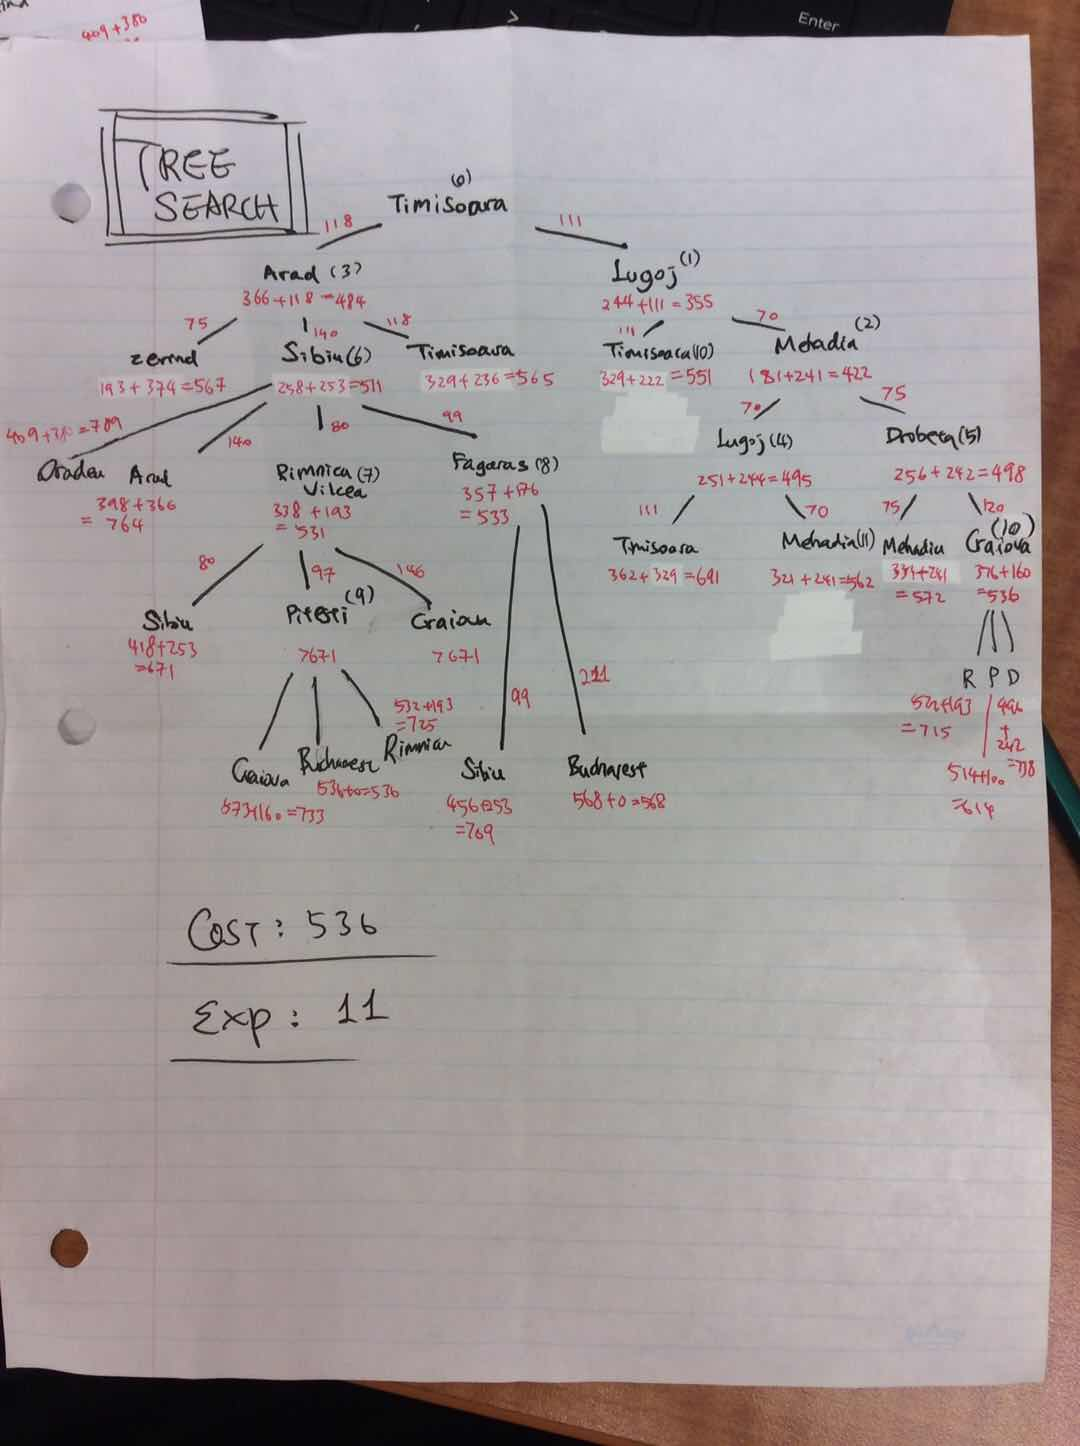 409+380
Enter
TREE
SEARCH
(0)
Timisoara
118
111
Arad (3)
366+118=484
Lugoj (1)
244+111=355
75
140
118
111
70
Zerind
193+374=567
Sibiu (6)
258+253=511
Timisoara
329+236=565
Timisoara (10)
329+222=551
Mehadia (2)
181+241=422
409+380=789
140
80
99
70
75
Oradea
Arad
398+366
= 764
Rimnicu (7)
Vilcea
338 +193
= 531
Fagaras (8)
357+176
= 533
Lugoj (4)
251+244=495
Drobeta (5)
256+242=498
111
70
75
120
Timisoara
362+329=691
Mehadia (11)
321+241=562
Mehadia
331+241
= 572
(10)
Craiova
376+160
=536
80
97
146
Sibiu
418+253
=671
Pitesti (9)
>671
Craiova
>671
99
211
R P D
522+193
= 715
496
+
242
=738
514+100
=614
532+193
=725
Craiova
573+160=733
Bucharest
536+0=536
Rimnicu
Sibiu
456+253
=709
Bucharest
568+0=568
Cost: 536
Exp: 11